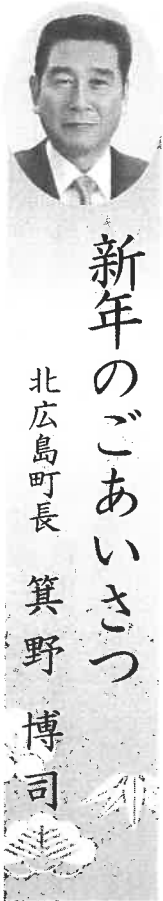 新年のごあいさつ
北広島町長　箕野　博司